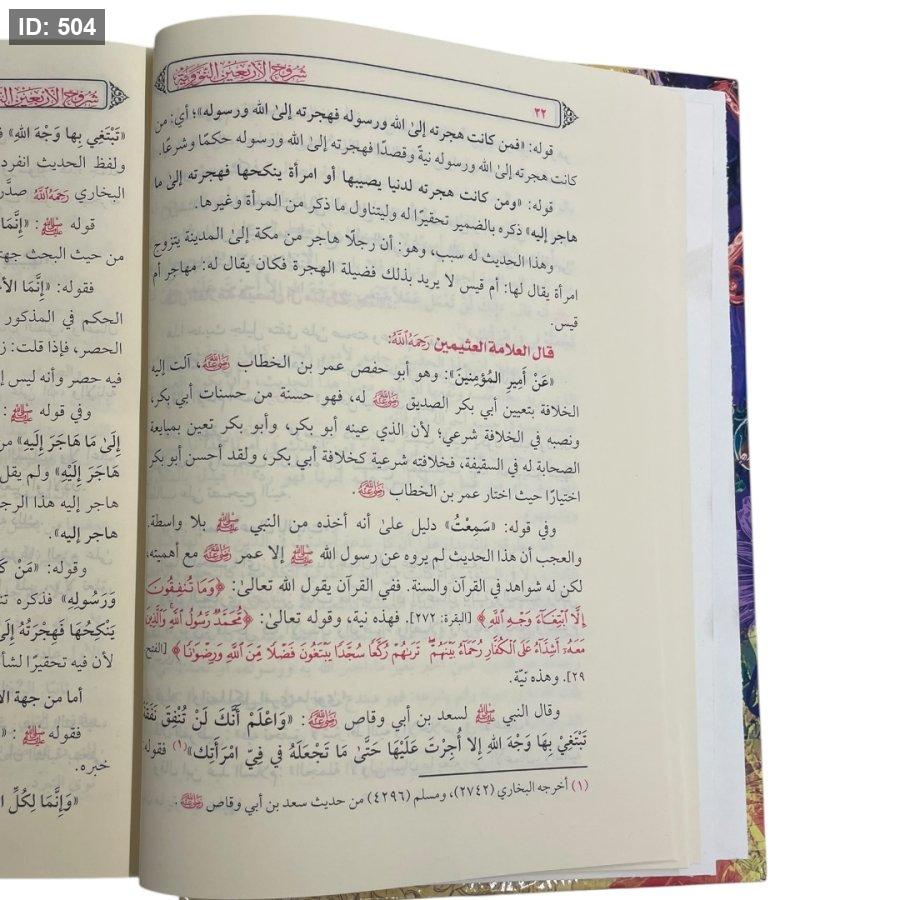 ID: 504
شروح الأربعين النووية
٣٢
قوله: «فمن كانت هجرته إلىٰ الله ورسوله فهجرته إلىٰ الله ورسوله»؛ أي: من
كانت هجرته إلىٰ الله ورسوله نيةً وقصدًا فهجرته إلىٰ الله ورسوله حكمًا وشرعًا.
قوله: «ومن كانت هجرته لدنيا يصيبها أو امرأة ينكحها فهجرته إلىٰ ما
هاجر إليه» ذكره بالضمير تحقيرًا له وليتناول ما ذكر من المرأة وغيرها.
وهذا الحديث له سبب، وهو: أن رجلًا هاجر من مكة إلىٰ المدينة يتزوج
امرأة يقال لها: أم قيس لا يريد بذلك فضيلة الهجرة فكان يقال له: مهاجر أم
قيس.
قال العلامة العثيمين رَحِمَهُ ٱللَّهُ:
«عَنْ أَمِيرِ المُؤْمِنِينَ»: وهو أبو حفص عمر بن الخطاب رضي الله عنه، آلت إليه
الخلافة بتعيين أبي بكر الصديق رضي الله عنه له، فهو حسنة من حسنات أبي بكر،
ونصبه في الخلافة شرعي؛ لأن الذي عينه أبو بكر، وأبو بكر تعين بمبايعة
الصحابة له في السقيفة، فخلافته شرعية كخلافة أبي بكر، ولقد أحسن أبو بكر
اختيارًا حيث اختار عمر بن الخطاب رضي الله عنه.
وفي قوله: «سَمِعْتُ» دليل علىٰ أنه أخذه من النبي ﷺ بلا واسطة.
والعجب أن هذا الحديث لم يروه عن رسول الله ﷺ إلا عمر رضي الله عنه مع أهميته،
لكن له شواهد في القرآن والسنة. ففي القرآن يقول الله تعالىٰ: ﴿وَمَا تُنفِقُونَ
إِلَّا ٱبْتِغَآءَ وَجْهِ ٱللَّهِ﴾ [البقرة: ٢٧٢]. فهذه نية، وقوله تعالىٰ: ﴿مُّحَمَّدٌ رَّسُولُ ٱللَّهِ ۚ وَٱلَّذِينَ
مَعَهُۥٓ أَشِدَّآءُ عَلَى ٱلْكُفَّارِ رُحَمَآءُ بَيْنَهُمْ ۖ تَرَىٰهُمْ رُكَّعًا سُجَّدًا يَبْتَغُونَ فَضْلًا مِّنَ ٱللَّهِ وَرِضْوَٰنًا﴾ [الفتح
٢٩]. وهذه نيّة.
وقال النبي ﷺ لسعد بن أبي وقاص رضي الله عنه: «وَاعْلَمْ أَنَّكَ لَنْ تُنْفِقَ نَفَقَةً
تَبْتَغِيْ بِهَا وَجْهَ اللهِ إلا أُجِرْتَ عَلَيْهَا حَتَّىٰ مَا تَجْعَلَهُ فِي فِيِّ امْرَأَتِكَ»(١) فقوله:
(١) أخرجه البخاري (٢٧٤٢)، ومسلم (٤٢٩٦) من حديث سعد بن أبي وقاص رضي الله عنه.
شروح الأربعين
«تَبْتَغِي بِها وَجْهَ اللهِ»
ولفظ الحديث انفرد
البخاري رَحِمَهُ ٱللَّهُ صدَّر
قوله ﷺ: «إِنَّمَا
من حيث البحث جهة
فقوله: «إِنَّمَا
الحكم في المذكور
الحصر، فإذا قلت:
فيه حصر وأنه ليس
وفي قوله ﷺ:
إِلَىٰ مَا هَاجَرَ إِلَيهِ» من
هَاجَرَ إِلَيْهِ» ولم يقل
هاجر إليه هذا الرجل
هاجر إليه».
وقوله: «مَنْ
وَرَسُولِهِ» فذكره
يَنْكِحُهَا فَهِجْرَتُهُ إِلَىٰ
لأن فيه تحقيرًا
أما من جهة
فقوله ﷺ: «
خبره.
«وَإِنَّمَا لِكُلِّ